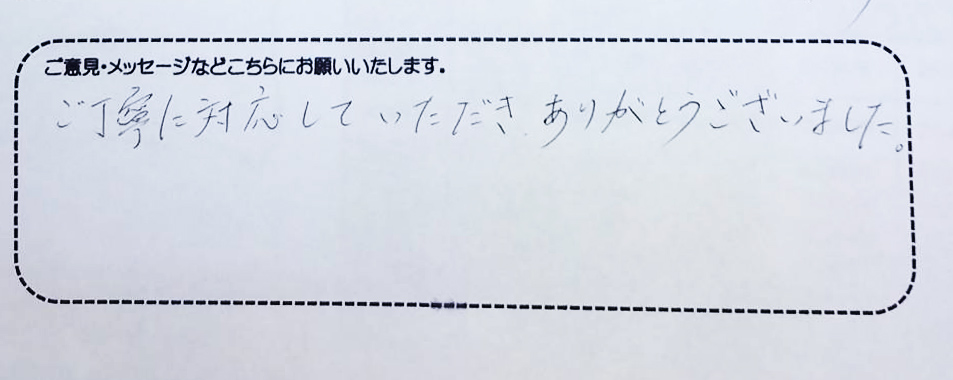 ご意見・メッセージなどこちらにお願いいたします。
ご丁寧に対応していただきありがとうございました。